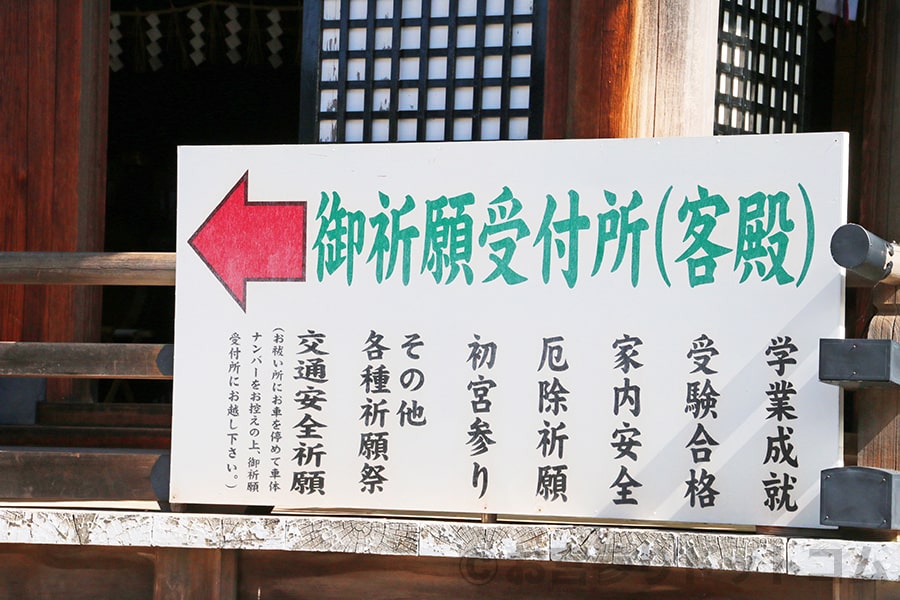 御祈願受付所(客殿)
学業成就
受験合格
家内安全
厄除祈願
初宮参り
その他
各種祈願祭
交通安全祈願
(お祓い所にお車を停めて車体
ナンバーをお控えの上、御祈願
受付所にお越し下さい。)
©お宮参りドットコム